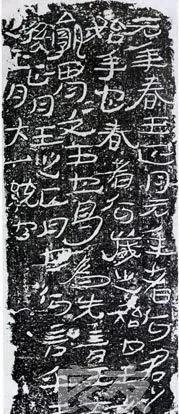 元年春王正月元年者何君之
始年也春者何歲之始也王
胃文王也曷為先言王
正月王之正月也何言
正月大一統也